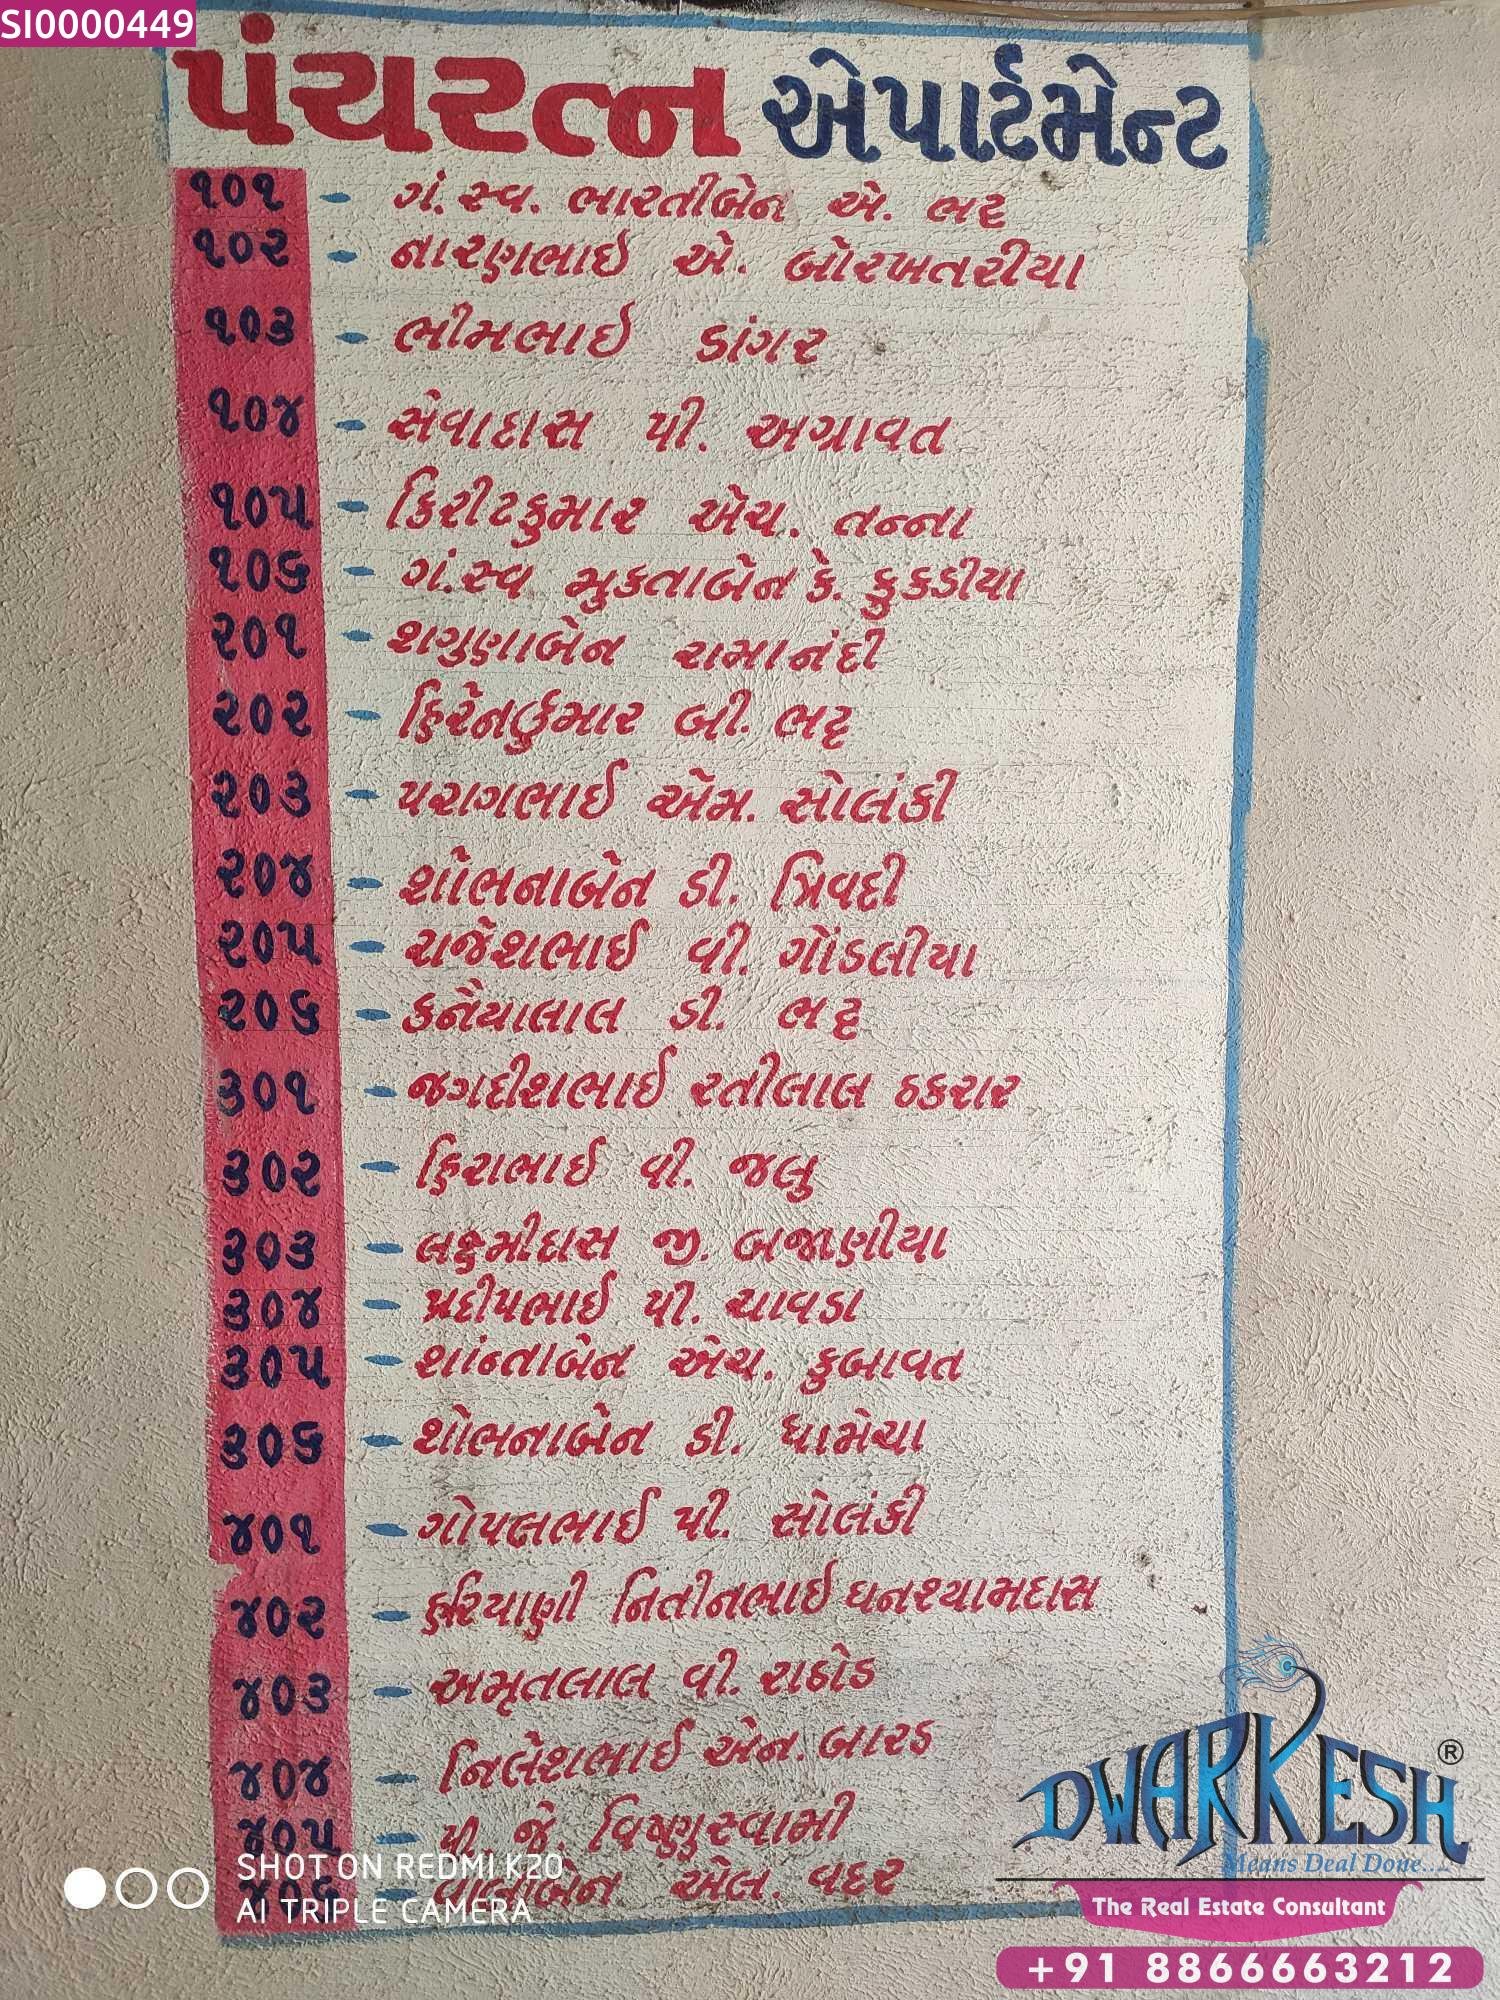 SI0000449
પંચરત્ન એપાર્ટમેન્ટ
૧૦૧ - ગં. સ્વ. ભારતીબેન એ. ભટ્ટ
૧૦૨ - નારણભાઈ એ. બોરખતરીયા
૧૦૩ - ભીમભાઈ ડાંગર
૧૦૪ - સેવાદાસ પી. અગ્રાવત
૧૦૫ - કિરીટકુમાર એચ. તન્ના
૧૦૬ - ગં.સ્વ મુકતાબેન કે. કુકડીયા
૨૦૧ - શગુણાબેન રામાનંદી
૨૦૨ - હિરેનકુમાર બી. ભટ્ટ
૨૦૩ - પરાગભાઈ એમ. સોલંકી
૨૦૪ - શોભનાબેન ડી. ત્રિવદી
૨૦૫ - રાજેશભાઈ વી. ગોંડલીયા
૨૦૬ - કનૈયાલાલ ડી. ભટ્ટ
૩૦૧ - જગદીશભાઈ રતીલાલ ઠકરાર
૩૦૨ - હિરાભાઈ વી. જલુ
૩૦૩ - લક્ષ્મીદાસ જી. બજાણીયા
૩૦૪ - પ્રદીપભાઈ પી. ચાવડા
૩૦૫ - શાંન્તાબેન એચ. કુબાવત
૩૦૬ - શોભનાબેન ડી. ધામેચા
૪૦૧ - ગોપલભાઈ પી. સોલંકી
૪૦૨ - હરિયાણી નિતીનભાઈ ઘનશ્યામદાસ
૪૦૩ - અમૃતલાલ વી. રાઠોડ
૪૦૪ - નિલેશભાઈ એન. બારડ
૪૦૫ - પી. જે. વિષ્ણુસ્વામી
૪૦૬ - એલ. વદર
SHOT ON REDMI K20
AI TRIPLE CAMERA
DWARKESH®
Means Deal Done....
The Real Estate Consultant
+91 8866663212